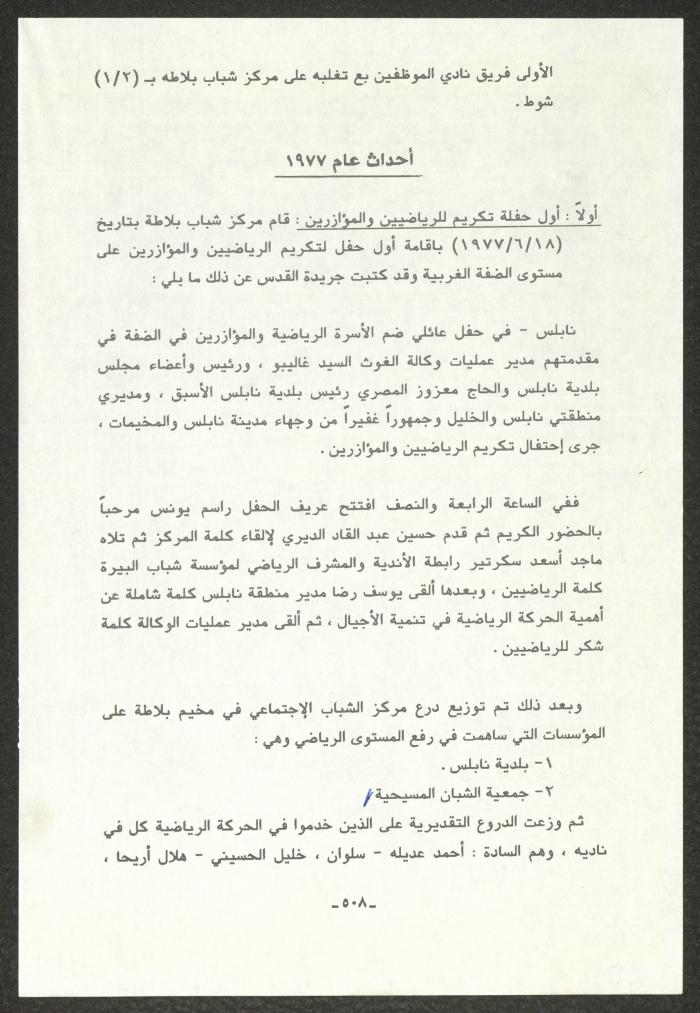 الأولى فريق نادي الموظفين بع تغلبه على مركز شباب بلاطه بـ (١/٢)
شوط .
أحداث عام ١٩٧٧
أولاً : أول حفلة تكريم للرياضيين والمؤازرين : قام مركز شباب بلاطة بتاريخ
(١٩٧٧/٦/١٨) باقامة أول حفل لتكريم الرياضيين والمؤازرين على
مستوى الضفة الغربية وقد كتبت جريدة القدس عن ذلك ما يلي :
نابلس - في حفل عائلي ضم الأسرة الرياضية والمؤازرين في الضفة في
مقدمتهم مدير عمليات وكالة الغوث السيد غاليبو ، ورئيس وأعضاء مجلس
بلدية نابلس والحاج معزوز المصري رئيس بلدية نابلس الأسبق ، ومديري
منطقتي نابلس والخليل وجمهوراً غفيراً من وجهاء مدينة نابلس والمخيمات ،
جرى إحتفال تكريم الرياضيين والمؤازرين .
ففي الساعة الرابعة والنصف افتتح عريف الحفل راسم يونس مرحباً
بالحضور الكريم ثم قدم حسين عبد القاد الديري لإلقاء كلمة المركز ثم تلاه
ماجد أسعد سكرتير رابطة الأندية والمشرف الرياضي لمؤسسة شباب البيرة
كلمة الرياضيين ، وبعدها ألقى يوسف رضا مدير منطقة نابلس كلمة شاملة عن
أهمية الحركة الرياضية في تنمية الأجيال ، ثم ألقى مدير عمليات الوكالة كلمة
شكر للرياضيين .
وبعد ذلك تم توزيع درع مركز الشباب الإجتماعي في مخيم بلاطة على
المؤسسات التي ساهمت في رفع المستوى الرياضي وهي :
١- بلدية نابلس .
٢- جمعية الشبان المسيحية
ثم وزعت الدروع التقديرية على الذين خدموا في الحركة الرياضية كل في
ناديه ، وهم السادة : أحمد عديله - سلوان ، خليل الحسيني - هلال أريحا ،
-٥٠٨-